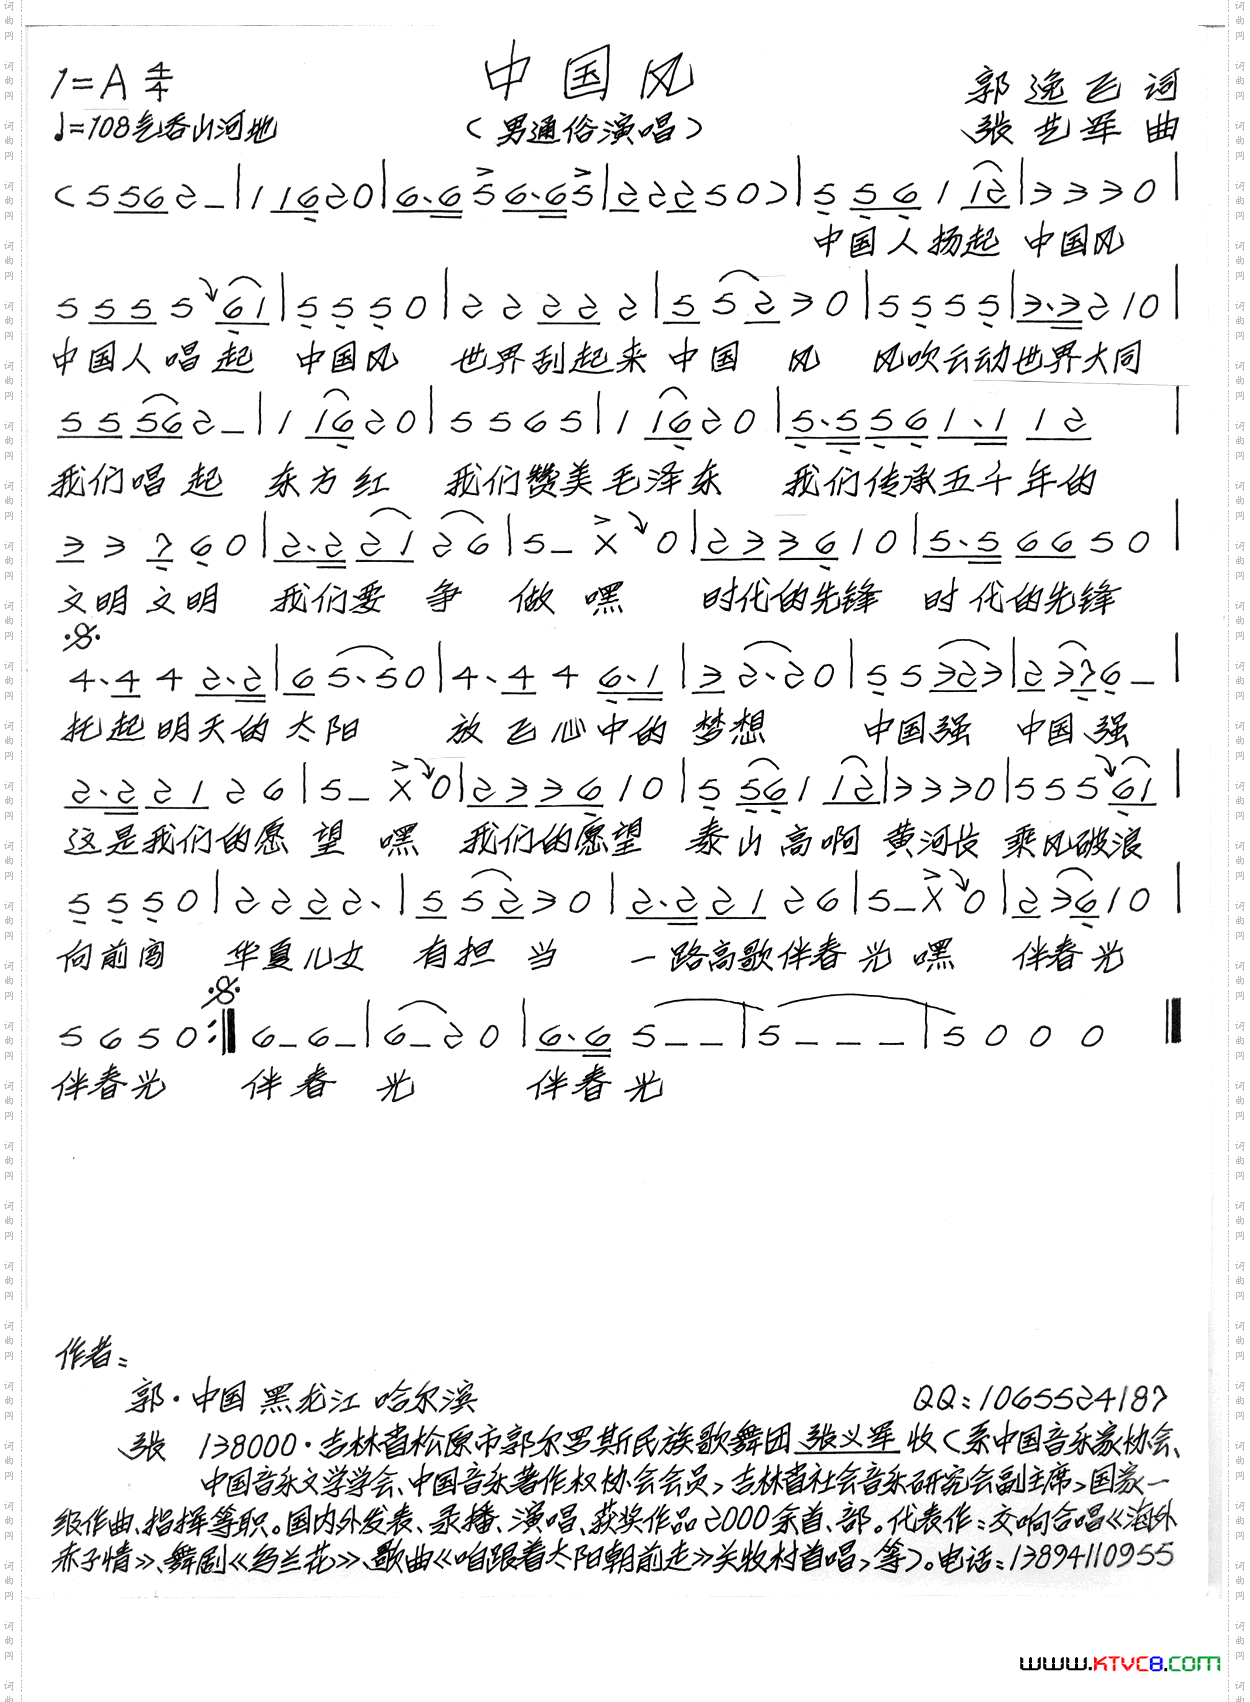 中国风
1=A 4/4
郭逸飞 词
♩=108气吞山河地
（男通俗演唱）
张艺军 曲
(5 5 6 2 - | 1 1 6 2 0 | 6·6 5 6·6 5 | 2 2 2 5 0) | 5 5 6 1 1 2 | 3 3 3 0 |
中国人扬起 中国风
5 5 5 5 6 1 | 5 5 5 0 | 2 2 2 2 2 | 5 5 2 3 0 | 5 5 5 5 | 3·3 2 1 0 |
中国人唱起 中国风 世界刮起来 中国 风 风吹云动世界大同
5 5 5 6 2 - | 1 1 6 2 0 | 5 5 6 5 | 1 1 6 2 0 | 5·5 5 6 1·1 1 2 |
我们唱起 东方红 我们赞美毛泽东 我们传承五千年的
3 3 7 6 0 | 2·2 2 1 2 6 | 5 - X 0 | 2 3 3 6 1 0 | 5·5 6 6 5 0 |
文明文明 我们要 争 做 嘿 时代的先锋 时代的先锋
4·4 4 2·2 | 6 5·5 0 | 4·4 4 6·1 | 3 2·2 0 | 5 5 3 2 3 | 2 3 7 6 - |
托起明天的太阳 放飞心中的梦想 中国强 中国强
2·2 2 1 2 6 | 5 - X 0 | 2 3 3 6 1 0 | 5 5 6 1 1 2 | 3 3 3 0 | 5 5 5 6 1 |
这是我们的愿望 嘿 我们的愿望 泰山高啊 黄河长 乘风破浪
5 5 5 0 | 2 2 2 2· | 5 5 2 3 0 | 2·2 2 1 2 6 | 5 - X 0 | 2 3 6 1 0 |
向前闯 华夏儿女 有担 当 一路高歌伴春光 嘿 伴春光
5 6 5 0 :‖ 6 - 6 - | 6 - 2 0 | 6·6 5 - - | 5 - - - | 5 0 0 0 ‖
伴春光 伴春 光 伴春光
作者：
郭·中国 黑龙江 哈尔滨 QQ：1065524187
张 138000·吉林省松原市郭尔罗斯民族歌舞团 张义军 收（系中国音乐家协会、
中国音乐文学学会、中国音乐著作权协会会员，吉林省社会音乐研究会副主席，国家一
级作曲、指挥等职。国内外发表、录播、演唱、获奖作品2000余首、部。代表作：交响合唱《海外
赤子情》、舞剧《乌兰花》、歌曲《咱跟着太阳朝前走》关牧村首唱，等）。电话：13894110955
www.KTVC8.com